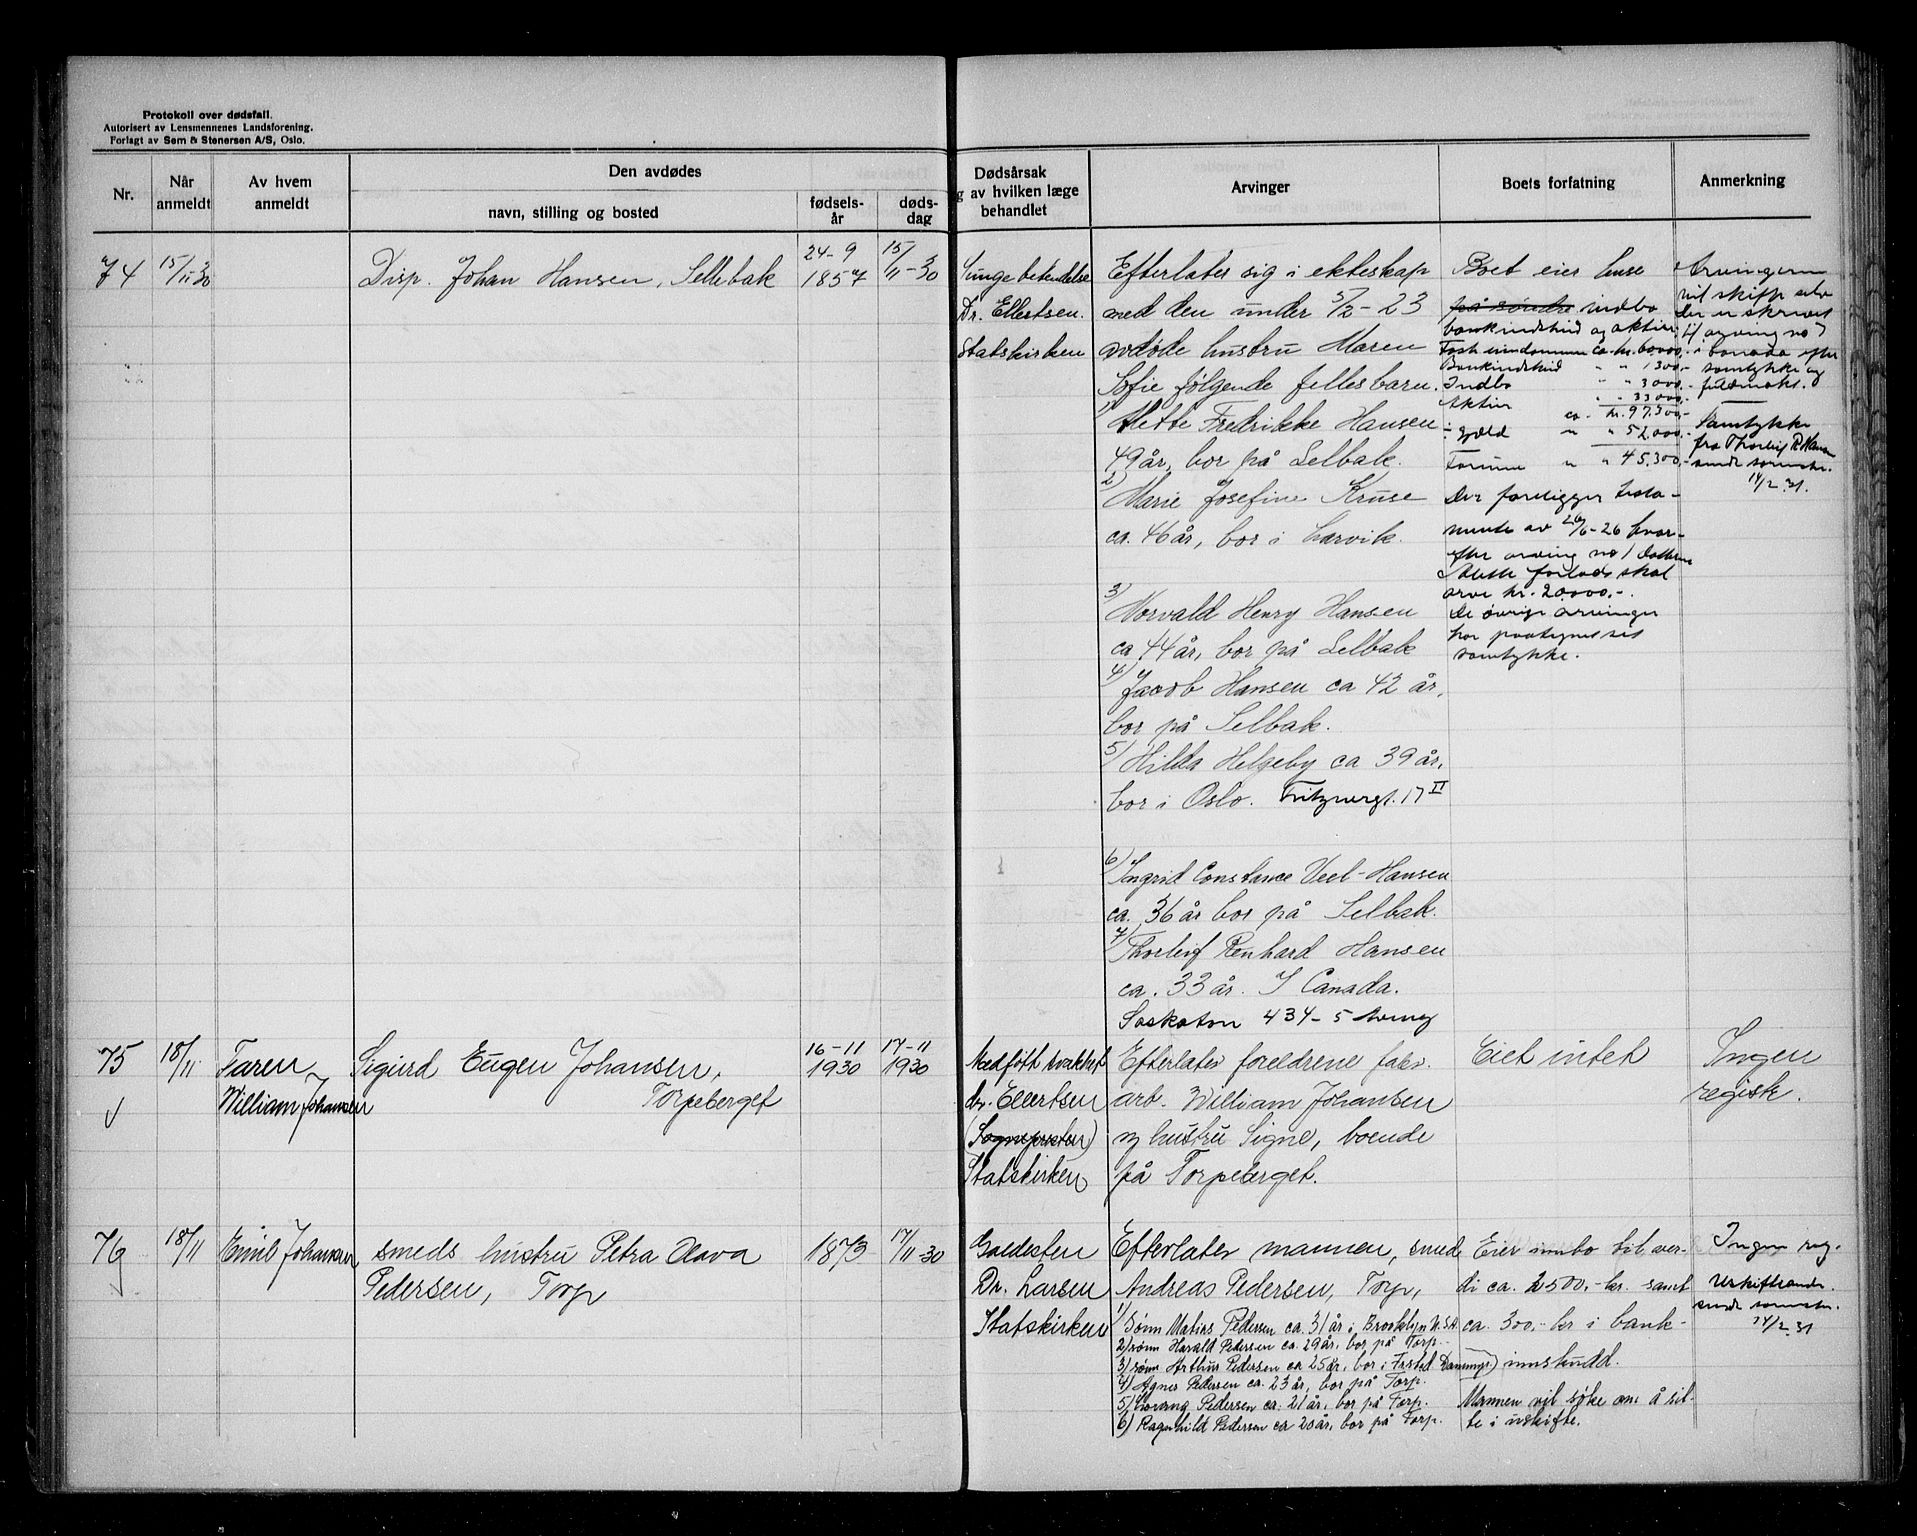 Protokoll over dødsfall.
Autorisert av Lensmennenes Landsforening.
Forlagt av Sem & Stenersen A/S, Oslo.
Nr.
Når
anmeldt
Av hvem
anmeldt
Den avdødes
navn, stilling og bosted
fødsels-
år
døds-
dag
Dødsårsak
g av hvilken læge
behandlet
Arvinger
Boets forfatning
Anmerkning
74
15/11 30
Disp. Johan Hansen, Sellebak
24-9
1857
15/11-30
Lungebetendelse
Dr. Ellertsen.
Statskirken
Efterlater sig i ekteskap
med den under 5/2-23
avdøde hustru Maren
Sofie følgende fellesbarn.
1) Alette Fredrikke Hansen
49 år, bor på Selbak.
2) Marie Josefine Kruse
ca. 46 år, bor i Larvik.
3) Norvald Henry Hansen
ca 44 år, bor på Selbak
4) Jacob Hansen ca 42 år,
bor på Selbak.
5) Hilda Helgeby ca 39 år,
bor i Oslo. Fritznersgt. 17 II
6) Ingrid Constance Veel-Hansen
ca. 36 år bor på Selbak.
7) Thorleif Renhard Hansen
ca. 33 år. I Canada.
Saskaton 434-5 Avenuy
Boet eier huse
på søndre indbo
bankindskud og aktier
Fast eiendomme ca. kr. 60000,-
Bankindskud " " 1300,-
Indbo " " 3000,-
Aktier " " 33000,-
ca. kr. 97.300,-
÷ gjeld " " 52.000,-
Formue " " 45.300,-
Der foreligger testa-
mente av 26/6-26 hvor-
efter arving no 1 datteren
Alette forlods skal
arve kr. 20000,-.
De øvrige arvinger
har paategnet sit
samtykke.
Arvingerne
vil skifte selv
Der er skrevet
til arving no 7
i Canada efter
samtykke og
fuldmakt.
Samtykke
fra Thorleif R. Hansen
sendt sorenskr.
14/2.31.
75
18/11
Faren
William Johansen
Sigurd Eugen Johansen,
Torpeberget
16-11
1930
17-11
1930
Medfött svakhet
dr. Ellertsen
(Sogneprsten)
Statskirken
Efterlater foreldrene fabr.
arb. William Johansen
og hustru Signe, boende
på Torpeberget.
Eiet intet
Ingen
registr.
76
18/11
Emil Johansen
smeds hustru Petra Olava
Pedersen, Torp
1873
17/11-30
Galdesten
Dr. Larsen
Statskirken
Efterlater mannen, smed
Andreas Pedersen, Torp,
1) Sønn Matias Pedersen ca. 31 år i Brooklyn U.S.A.
2) sønn Harald Pedersen ca. 29 år, bor på Torp.
3) sønn Arthur Pedersen ca 25 år, bor i
4) Agnes Pedersen ca. 23 år, bor på Torp.
5) Pedersen ca. 21 år, bor på Torp.
6) Ragnhild Pedersen ca 20 år, bor på Torp.
Eier innbo til ver-
di ca. 2500,- kr. samt
ca. 300,- kr i bank-
innskudd.
Mannen vil søke om å sit-
te i uskifte.
Ingen reg.
Uskifteande.
sendt sorenskr.
14/2.31